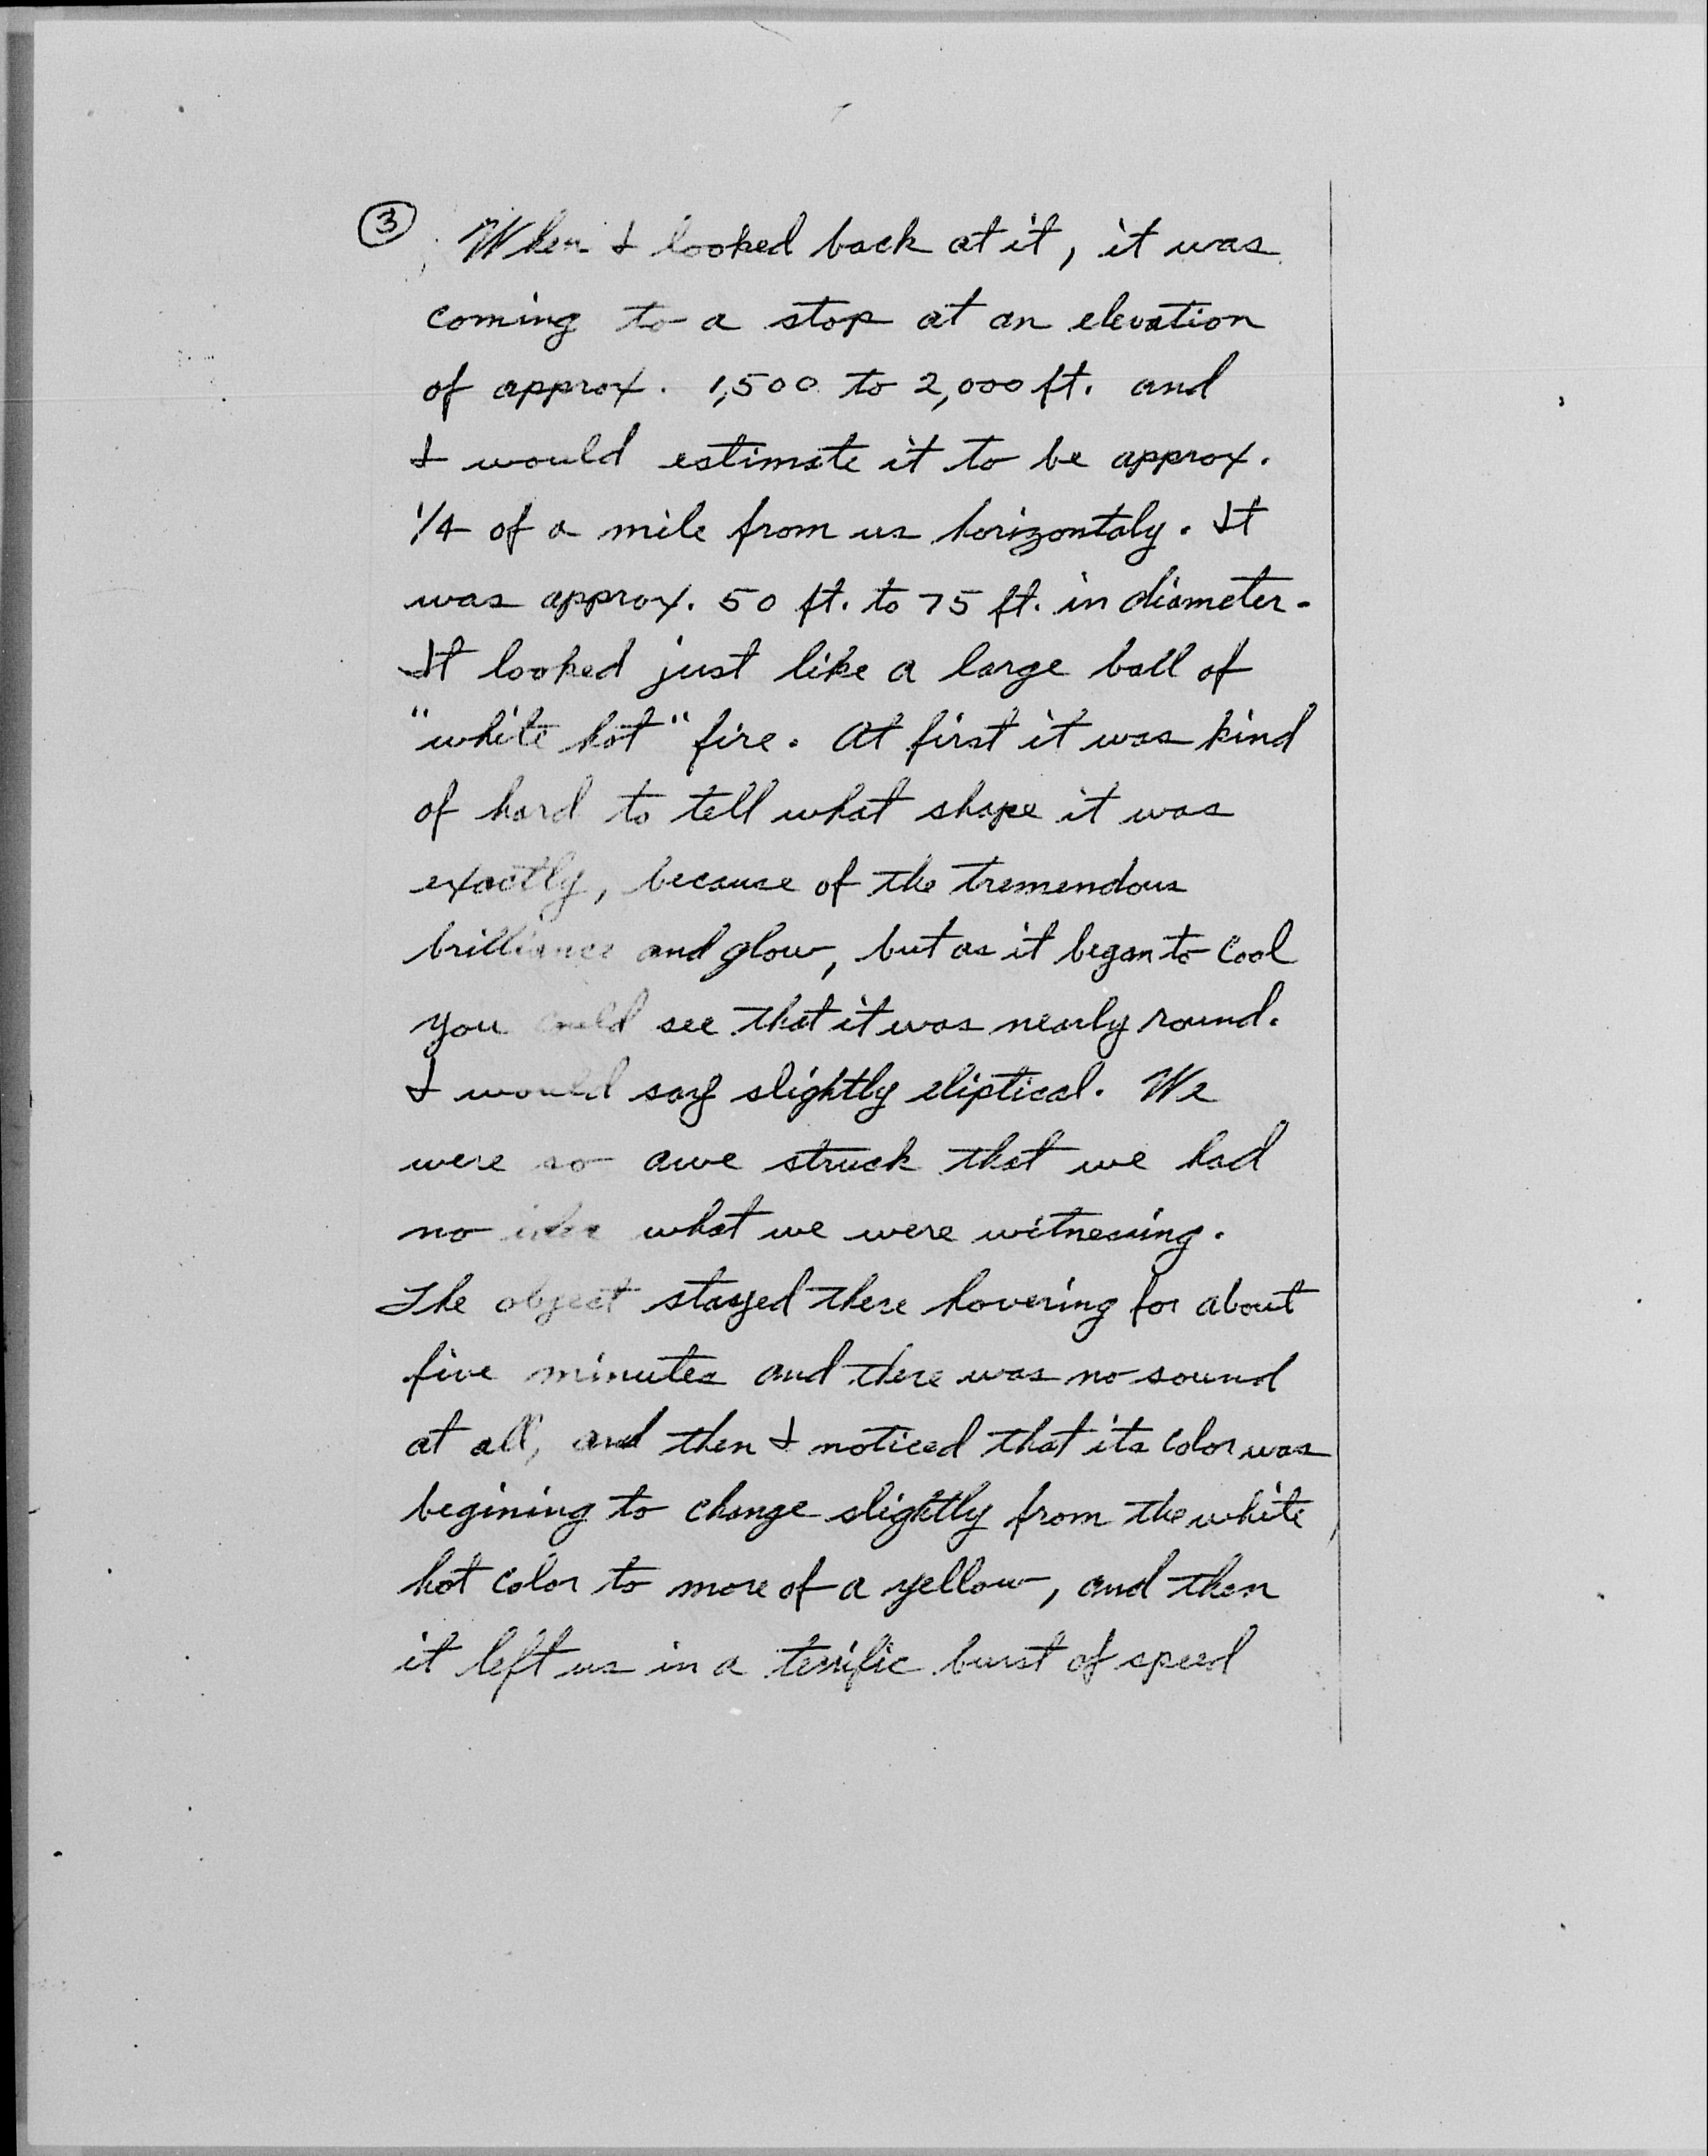 ③ When I looked back at it, it was
coming to a stop at an elevation
of approx. 1,500 to 2,000 ft. and
I would estimate it to be approx.
1/4 of a mile from us horizontaly. It
was approx. 50 ft. to 75 ft. in diameter.
It looked just like a large ball of
"white hot" fire. At first it was kind
of hard to tell what shape it was
exactly, because of the tremendous
brilliance and glow, but as it began to cool
you could see that it was nearly round.
I would say slightly eliptical. We
were so awe struck that we had
no idea what we were witnessing.
The object stayed there hovering for about
five minutes and there was no sound
at all, and then I noticed that its color was
begining to change slightly from the white
hot color to more of a yellow, and then
it left us in a terrific burst of speed